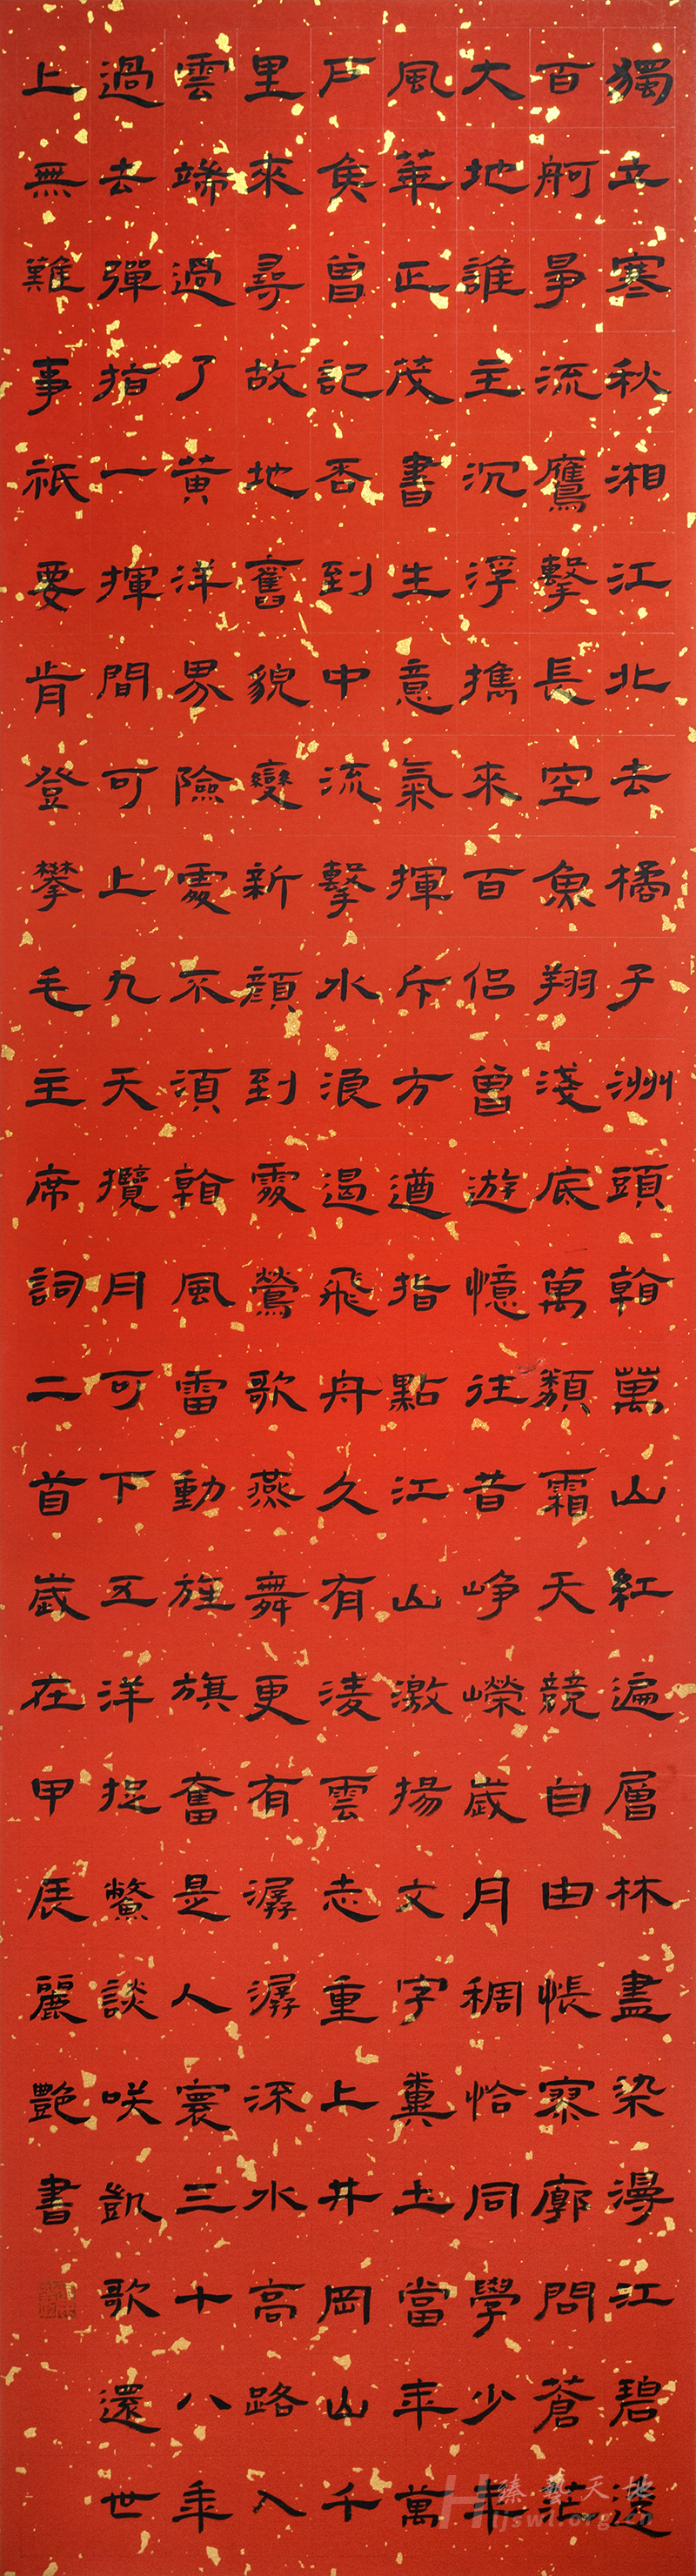 獨立寒秋湘江北去橘子洲頭看萬山紅遍層林盡染漫江碧透
百舸爭流鷹擊長空魚翔淺底萬類霜天競自由悵寥廓問蒼茫
大地誰主沉浮攜來百侶曾遊憶往昔崢嶸歲月稠恰同學少年
風華正茂書生意氣揮斥方遒指點江山激揚文字糞土當年萬
戶侯曾記否到中流擊水浪遏飛舟久有淩雲志重上井岡山千
里來尋故地舊貌變新顏到處鶯歌燕舞更有潺潺深水高路入
雲端過了黃洋界險處不須看風雷動旌旗奮是人寰三十八年
過去彈指一揮間可上九天攬月可下五洋捉鱉談咲凱歌還世
上無難事祇要肯登攀毛主席詞二首歲在甲辰麗艷書
臻藝天地